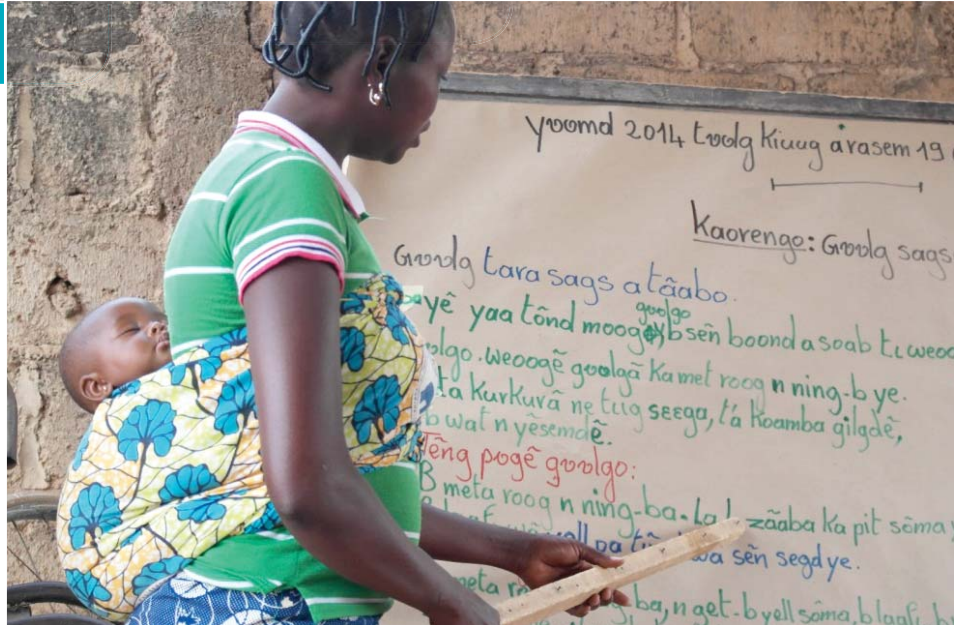 yʋʋmd 2014 tʋʋlg kiuug arasem 19
Kaorengo: Gʋʋlg sags
Gʋʋlg tara sags a tãabo.
goolgo
yẽ yaa tõnd moog b sẽn boond a soab tɩ weoo
olgo. weoogẽ gʋʋlgã ka met roog n ning-b ye.
ta kurkurã ne tɩɩg seega, t'á koamba gilgdẽ,
b wat n yẽsemdẽ.
Tẽng pʋgẽ gʋʋlgo:
B meta roog n ning-ba. La b zãaba ka pit sõma
yell pa sẽn segd ye.
meta ba, n get-b yell sõma, b laafɩ, b